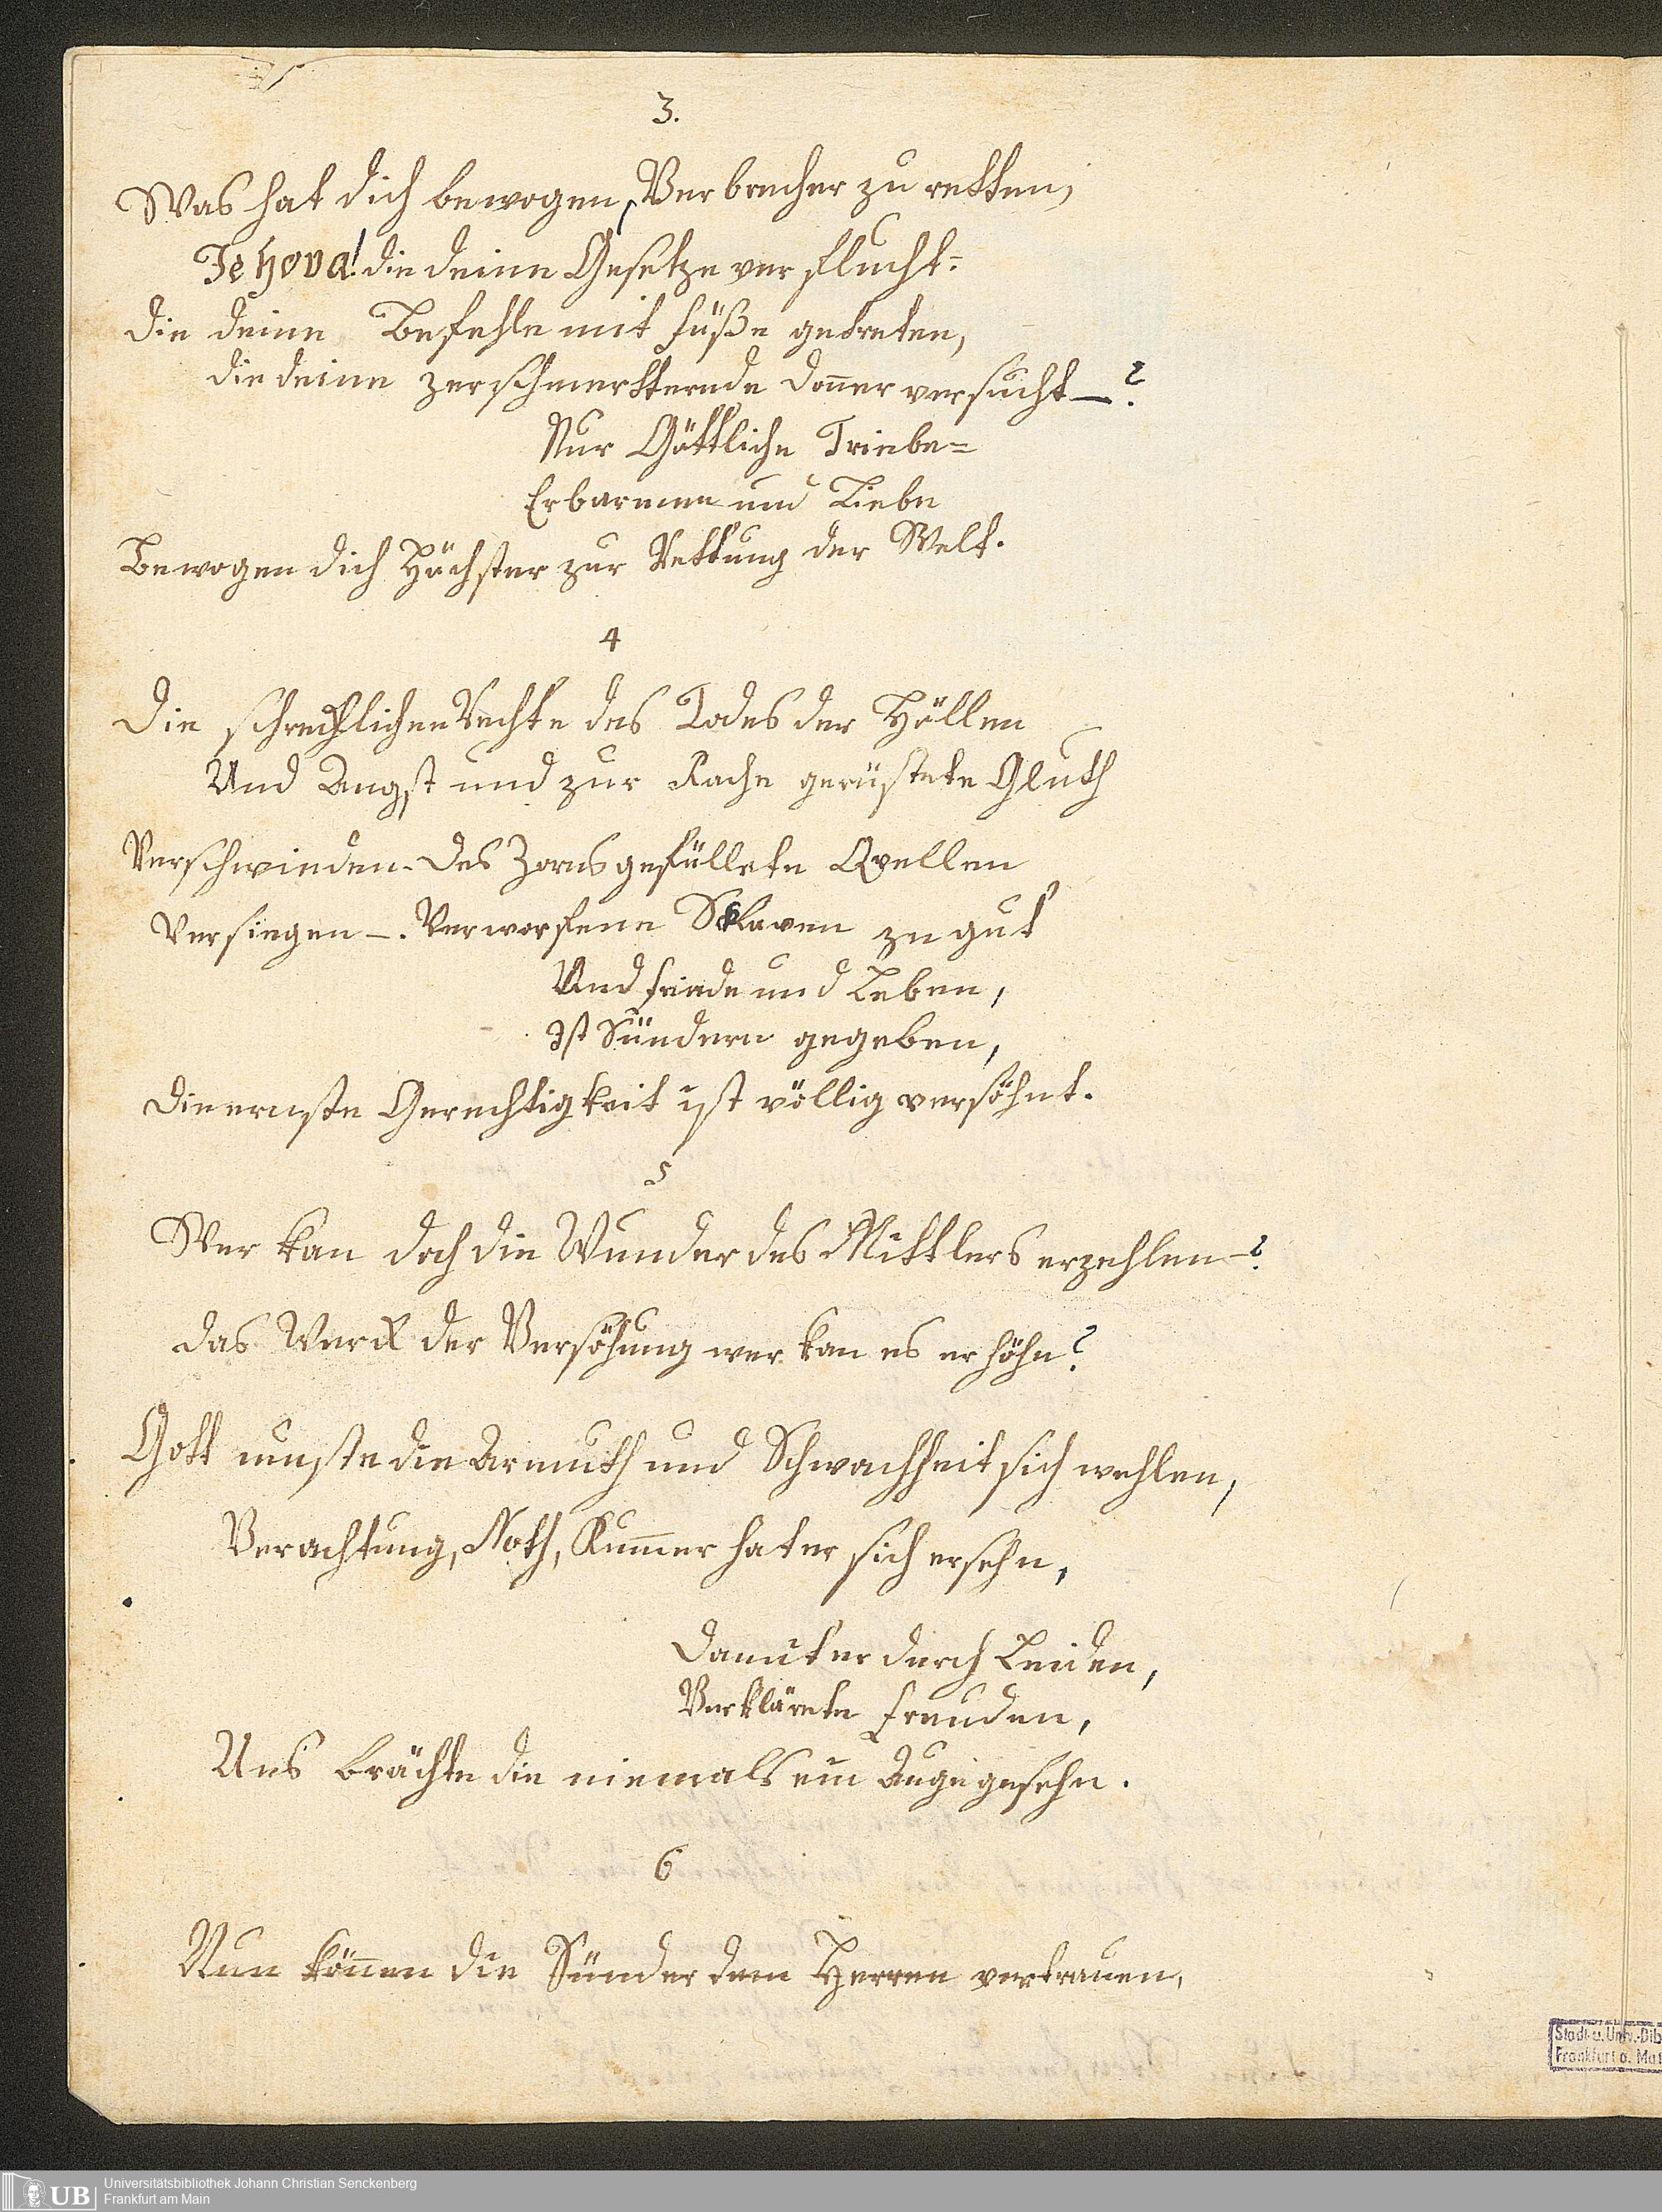 3.
Was hat dich bewogen, Verbrecher zu retten,
Jehova! die deine Gesetze verflucht=
die deine Befehle mit füße getreten,
die deine zerschmertternde Doñer versucht—?
Nur Göttliche Triebe=
Erbarmen und Liebe
Bewogen dich Höchster zur Rettung der Welt.
4
Die schrecklichen Rechte des Todes der Höllen
Und Angst und zur Rache gerüstete Gluth
Verschwinden. Des Zorns gefüllete Quellen
Versiegen—. Verworfene Sklaven zu gut
Und friede und Leben,
Ist Sündern gegeben,
Die ernste Gerechtigkeit ist völlig versöhnt.
5
Wer kan doch die Wunder des Mittlers erzehlen—?
das Werck der Versöhung wer kan es erhöhn?
Gott muste die Armuth und Schwachheit sich wehlen,
Verachtung, Noth, Kum̃er hat er sich ersehn,
Damit er durch Leiden,
Verklärete freuden,
Uns brächte die niemals ein Auge gesehn.
6
Nun köñen die Sünder dem Herren vertrauen,
Stadt- u. Univ.-Bib
Frankfurt a. Mai
UB
Universitätsbibliothek Johann Christian Senckenberg
Frankfurt am Main